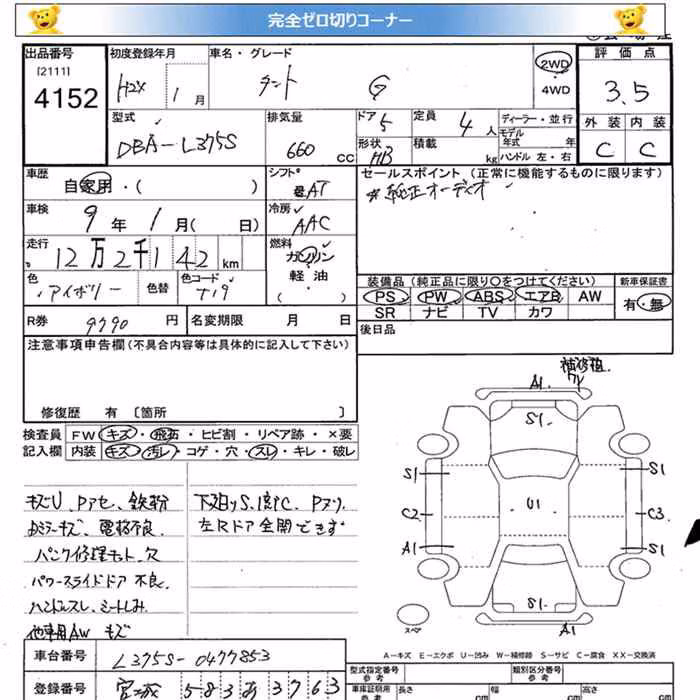 完全ゼロ切りコーナー
出品番号 初度登録年月 車名・グレード 2WD ・ 4WD 評価点
[2111]
4152 H2X 1月 タント G 3.5
型式 排気量 ドア 定員 ディーラー・並行 外装 内装
DBA-L375S 660 CC 5 4人 モデル年式 年式 C C
形状 HB 積載 kg ハンドル 左・右
車歴 シフト セールスポイント (正常に機能するものに限ります)
自家用・( ) AT 純正オーディオ
車検 冷房
9年 1月( 日) AAC
走行 燃料
12万2千142 km ガソリン
軽・油
( )
色 色替 色コード 装備品 (純正品に限り○をつけてください) 新車保証書
アイボリー T19 PS PW ABS エアB AW 有・無
SR ナビ TV カワ
R券 9790 円 名変期限 月 日 後日品
注意事項申告欄(不具合内容等は具体的に記入して下さい)
修復歴 有 [箇所 ]
検査員 FW キズ・飛石・ヒビ割・リペア跡・×要
記入欄 内装 キズ・汚レ・コゲ・穴・スレ・キレ・破レ
キズU、Pアセ、鉄粉 下廻りS、PC、
ミラーキズ、電格不良、左Rドア全開できず
パンク修理キット、欠
パワースライドドア 不良、
ハンドルスレ、シートしみ
他車用AW キズ
A1 S1
S1 S1
C2 U1 C3
A1 S1
S1
A1
スペア
A-キズ E-エクボ U-凹み W-補修跡 S-サビ C-腐食 XX-交換済
車台番号 L375S-0477853
型式指定番号 類別区分番号
登録番号 宮城 583 あ 3763
車庫証明用 長さ cm 幅 cm 高さ cm